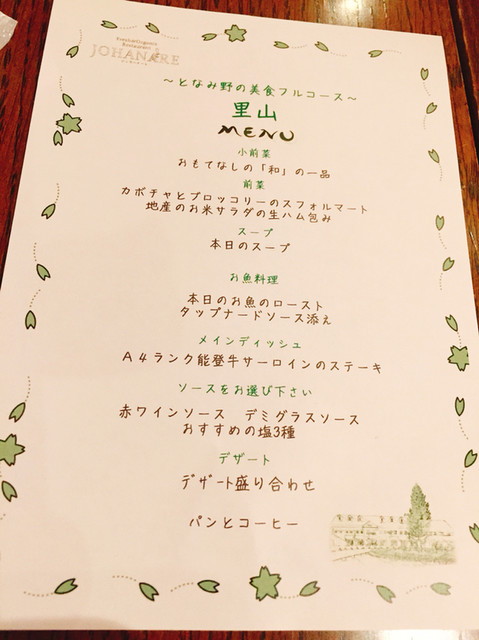 Restaurant
JOHANARE
～となみ野の美食フルコース～
里山
MENU
小前菜
おもてなしの「和」の一品
前菜
カボチャとブロッコリーのスフォルマート
地産のお米サラダの生ハム包み
スープ
本日のスープ
お魚料理
本日のお魚のロースト
タップナードソース添え
メインディッシュ
A4ランク能登牛サーロインのステーキ
ソースをお選び下さい
赤ワインソース デミグラスソース
おすすめの塩3種
デザート
デザート盛り合わせ
パンとコーヒー